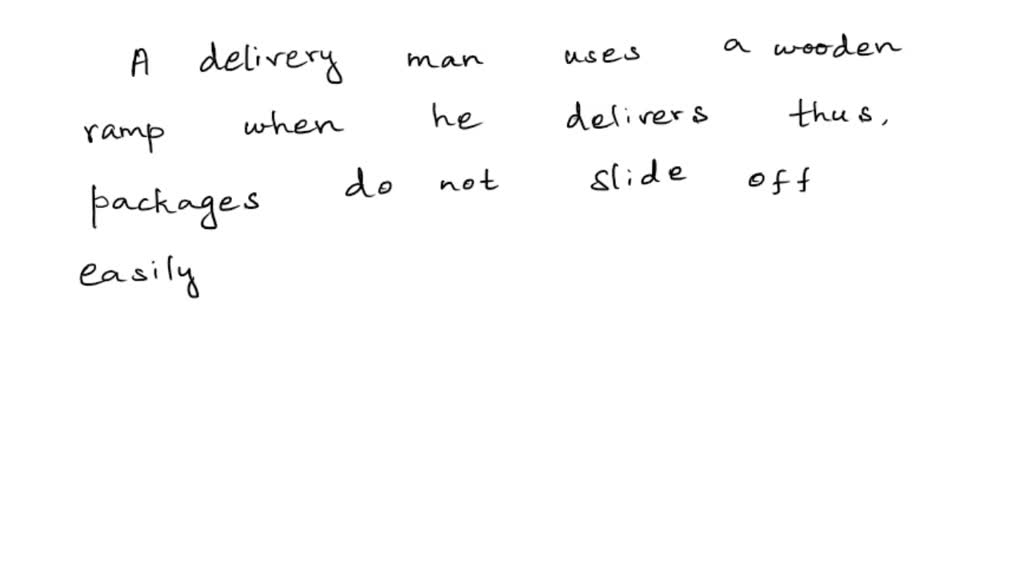 A delivery man uses a wooden
ramp when he delivers thus,
packages do not slide off
easily